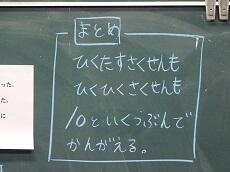 まとめ
ひくたすさくせんも
ひくひくさくせんも
10といくつぶんで
かんがえる。
った。
た。
に